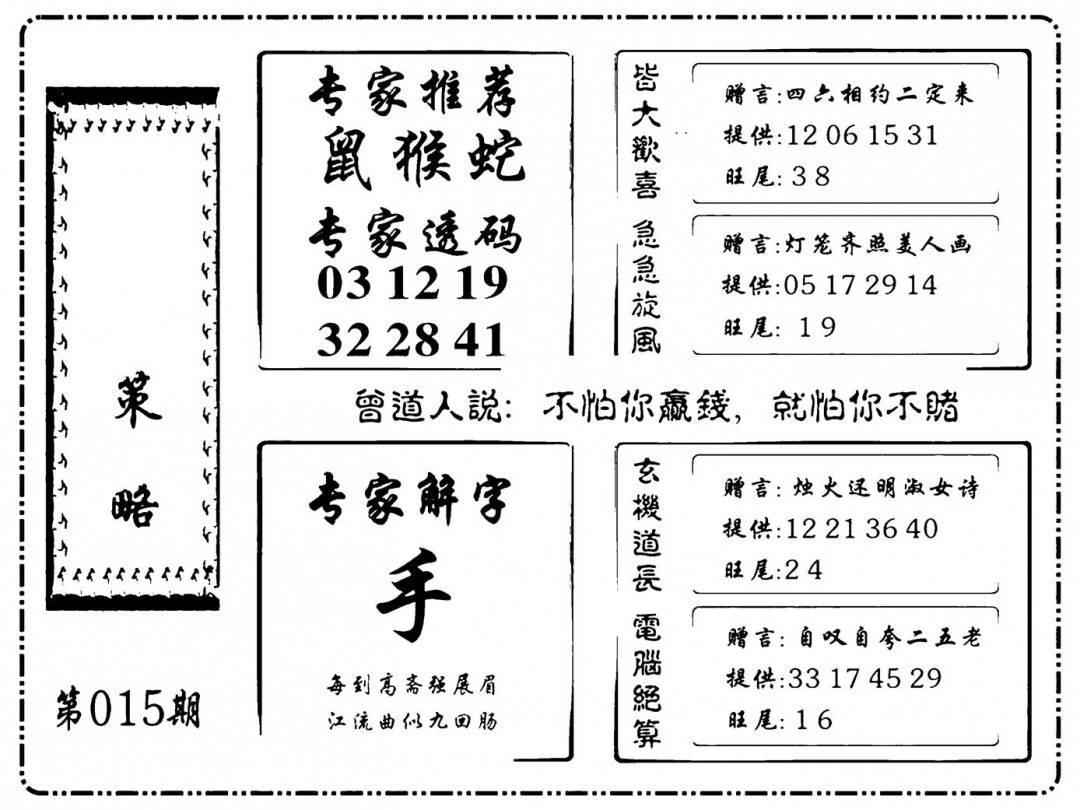 策略
第015期
专家推荐
鼠猴蛇
专家透码
03 12 19
32 28 41
皆大歡喜
赠言:四六相约二定来
提供:12 06 15 31
旺尾:3 8
急急旋風
赠言:灯笼齐照美人画
提供:05 17 29 14
旺尾: 1 9
曾道人説: 不怕你赢錢, 就怕你不賭
专家解字
手
每到高斋强展眉
江流曲似九回肠
玄機道長
赠言: 烛火还明淑女诗
提供:12 21 36 40
旺尾:2 4
電腦絕算
赠言: 自叹自夸二五老
提供:33 17 45 29
旺尾: 1 6